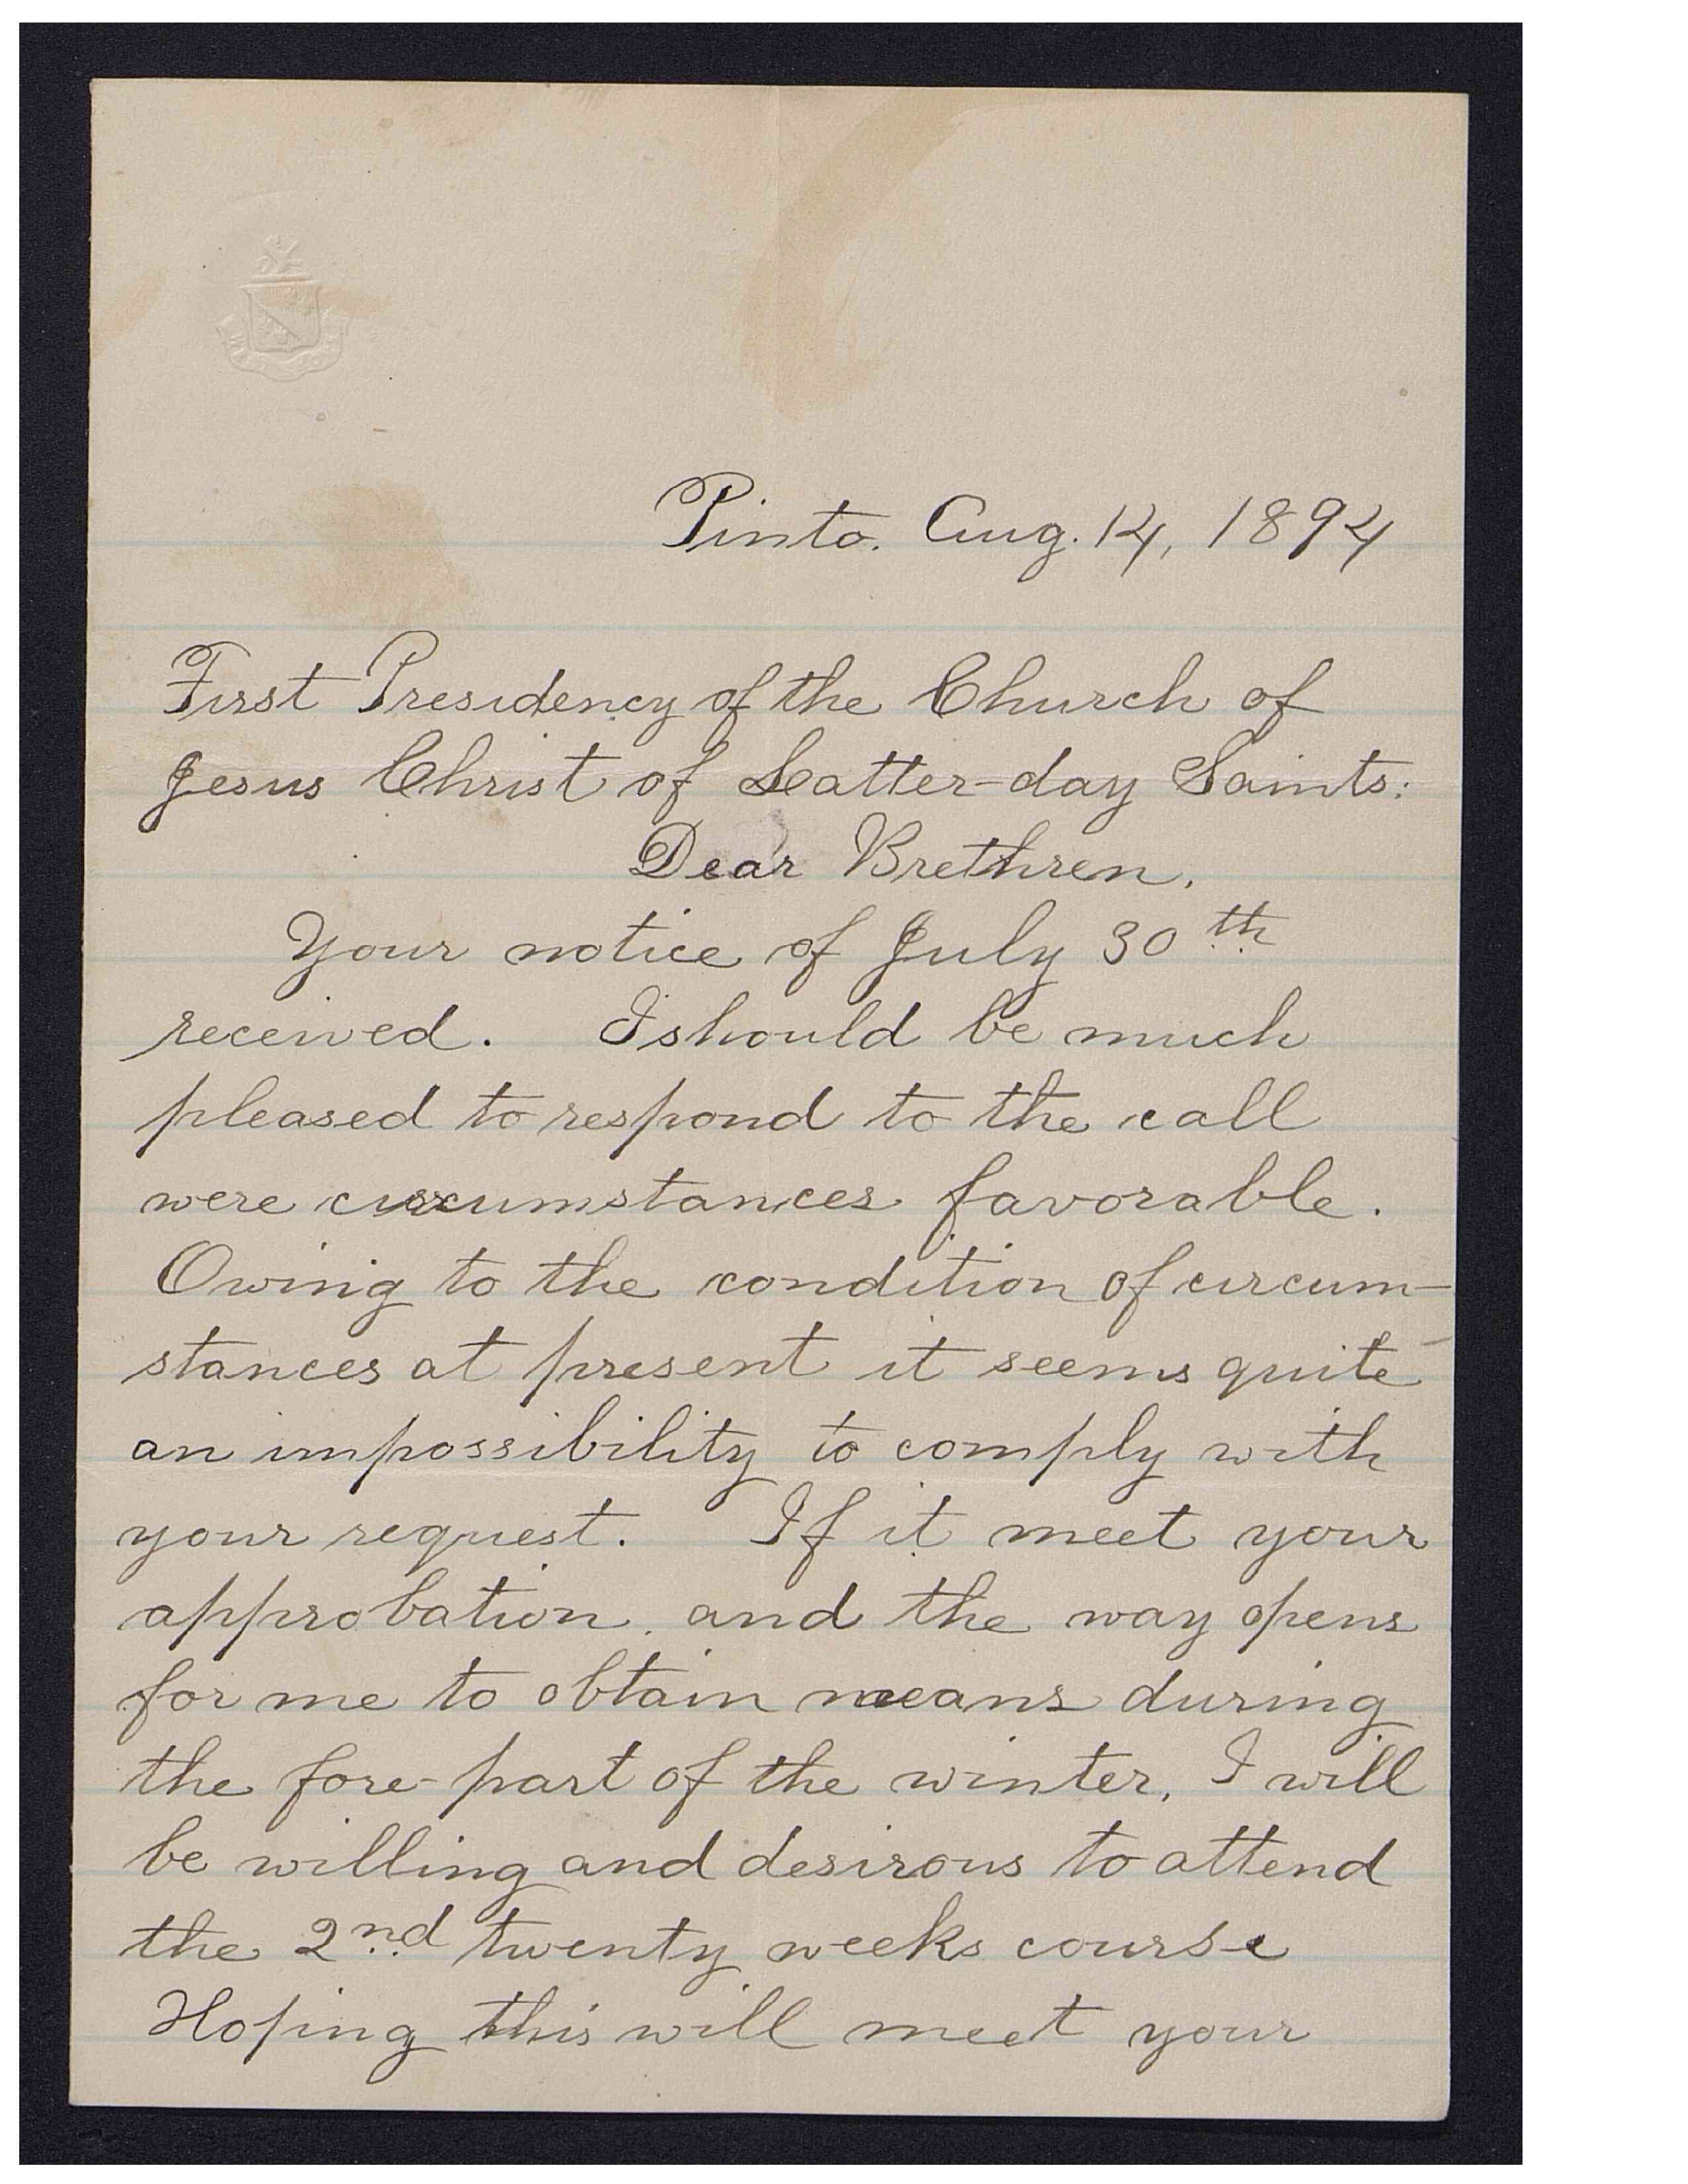 Pinto. Aug. 14, 1894
First Presidency of the Church of
Jesus Christ of Latter-day Saints:
Dear Brethren.
Your notice of July 30th
received. I should be much
pleased to respond to the call
were circumstances favorable.
Owing to the condition of circum-
stances at present it seems quite
an impossibility to comply with
your request. If it meet your
approbation. and the way opens
for me to obtain means during
the fore-part of the winter, I will
be willing and desirous to attend
the 2nd twenty weeks course
Hoping this will meet your